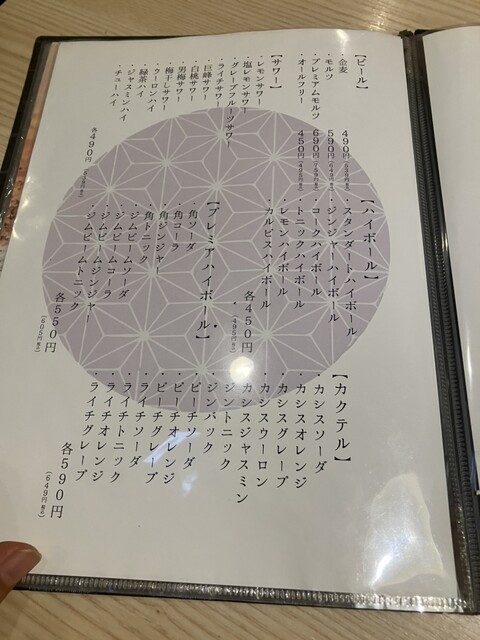 【ビール】
・金麦 490円(539円税込)
・モルツ 590円(649円税込)
・プレミアムモルツ 690円(759円税込)
・オールフリー 450円(495円税込)
【サワー】
・レモンサワー
・塩レモンサワー
・グレープフルーツサワー
・ライチサワー
・巨峰サワー
・白桃サワー
・男梅サワー
・梅干しサワー
・ウーロンハイ
・緑茶ハイ
・ジャスミンハイ
・チューハイ
各490円
【ハイボール】
・スタンダートハイボール
・ジンジャーハイボール
・コークハイボール
・トニックハイボール
・レモンハイボール
・カルピスハイボール
各450円
(495円税込)
【プレミアハイボール】
・角ソーダ
・角コーラ
・角ジンジャー
・角トニック
・ジムビームソーダ
・ジムビームコーラ
・ジムビームジンジャー
・ジムビームトニック
各550円
(605円税込)
【カクテル】
・カシスソーダ
・カシスオレンジ
・カシスグレープ
・カシスウーロン
・カシスジャスミン
・ジントニック
・ジンバック
・ピーチソーダ
・ピーチオレンジ
・ピーチグレープ
・ライチソーダ
・ライチトニック
・ライチオレンジ
・ライチグレープ
各590円
(649円税込)